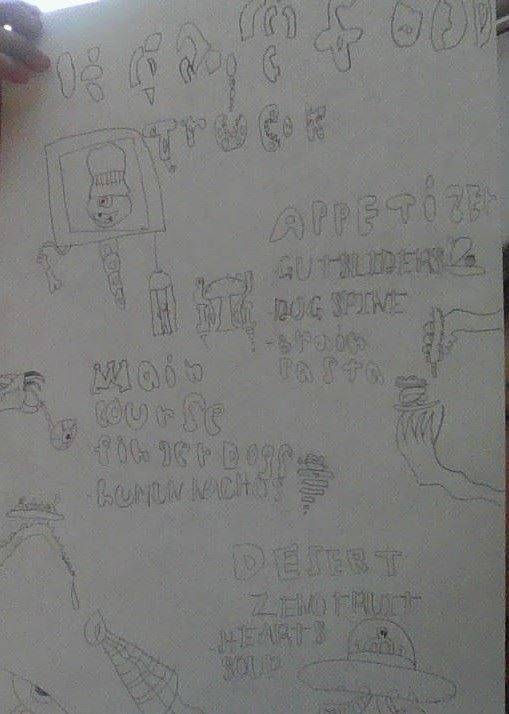 TrUCK
APPETiZEr
GUTSLIDERS
DOG SPINE
-brain
Pasta
Main
course
finger Dogs
-HUMUN NACHOS
DESERT
ZENOFRUIT
-HEARTS
SOUP